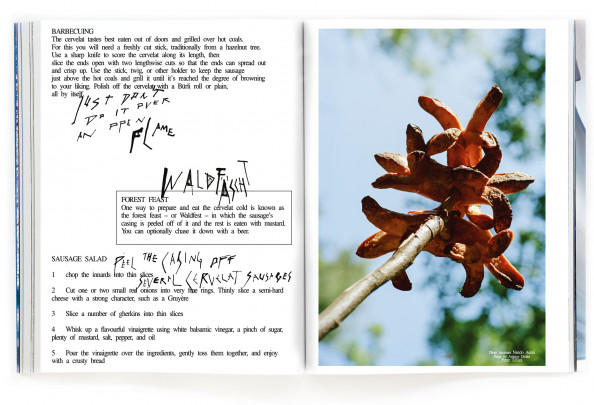 BARBECUING
The cervelat tastes best eaten out of doors and grilled over hot coals.
For this you will need a freshly cut stick, traditionally from a hazelnut tree.
Use a sharp knife to score the cervelat along its length, then
slice the ends open with two lengthwise cuts so that the ends can spread out
and crisp up. Use the stick, twig, or other holder to keep the sausage
just above the hot coals and grill it until it's reached the degree of browning
to your liking. Polish off the cervelat with a Bürli roll or plain,
all by itself.
JUST DON'T
DO IT OVER
AN OPEN
FLAME
WALDFÄSCHT
FOREST FEAST
One way to prepare and eat the cervelat cold is known as
the forest feast – or Waldfest – in which the sausage's
casing is peeled off of it and the rest is eaten with mustard.
You can optionally chase it down with a beer.
SAUSAGE SALAD
PEEL THE CASING OFF
SEVERAL CERVELAT SAUSAGES
1 chop the innards into thin slices
2 Cut one or two small red onions into very fine rings. Thinly slice a semi-hard
cheese with a strong character, such as a Gruyère
3 Slice a number of gherkins into thin slices
4 Whisk up a flavourful vinaigrette using white balsamic vinegar, a pinch of sugar,
plenty of mustard, salt, pepper, and oil
5 Pour the vinaigrette over the ingredients, gently toss them together, and enjoy
with a crusty bread